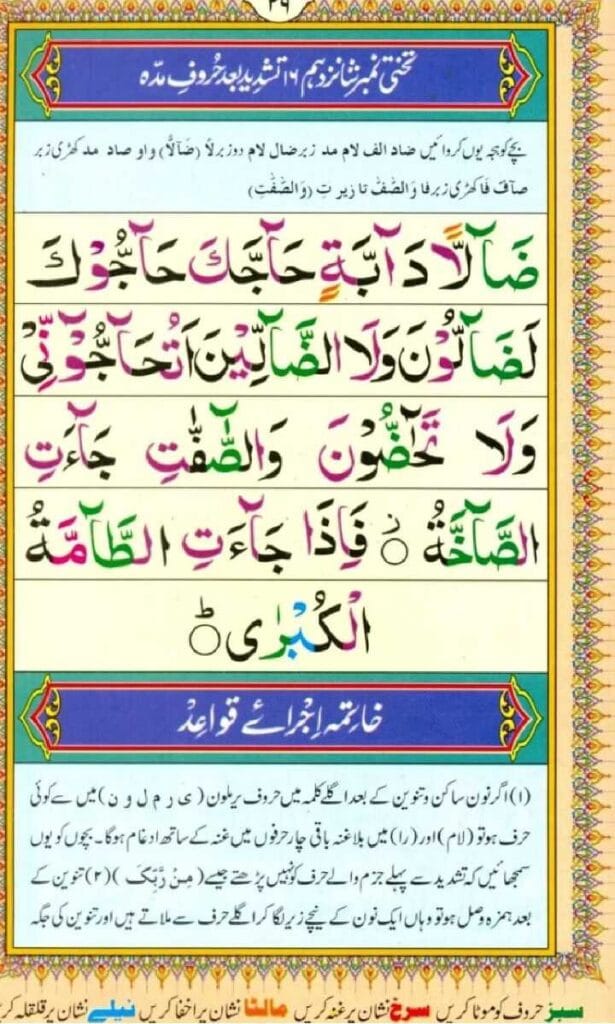 ۲۶
تختی نمبر شانزدہم ۱۶ تشدید بعد حروفِ مدّہ
بچے کو ہجہ یوں کروائیں ضاد الف لام مد زبر ضال لام دو زبر لاً (ضَآلًّا) واو صاد مد کھڑی زبر
صآف فا کھڑی زبر فا وَالصّٰٓفّٰ تا زیر تِ (وَالصّٰٓفّٰتِ)
ضَآلًّا دَآبَّةٍ حَآجَّكَ حَآجُّوْكَ
لَضَآلُّوْنَ وَلَا الضَّآلِّيْنَ اَتُحَآجُّوْٓنِّىْ
وَلَا تَحٰٓضُّوْنَ وَالصّٰٓفّٰتِ جَآءَتِ
الصَّآخَّةُ ۞ فَاِذَا جَآءَتِ الطَّآمَّةُ
الْكُبْرٰى ۞
خاتمہ اِجرائے قواعد
(۱) اگر نون ساکن و تنوین کے بعد اگلے کلمہ میں حروف یرملون (ی ر م ل و ن) میں سے کوئی
حرف ہو تو (لام) اور (را) میں بلا غنہ باقی چار حرفوں میں غنہ کے ساتھ ادغام ہوگا۔ بچوں کو یوں
سمجھائیں کہ تشدید سے پہلے جزم والے حرف کو نہیں پڑھتے جیسے (مِنْ رَّبِّكَ) (۲) تنوین کے
بعد ہمزہ وصل ہو تو وہاں ایک نون کے نیچے زیر لگا کر اگلے حرف سے ملاتے ہیں اور تنوین کی جگہ
سبز حروف کو موٹا کریں سرخ نشان پر غنہ کریں مالٹا نشان پر اخفا کریں نیلے نشان پر قلقلہ کر